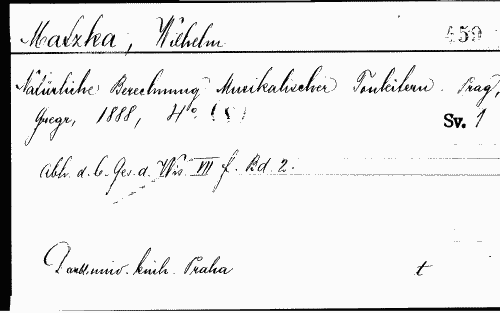 Matzka, Wilhelm 459
Natürliche Berechnung Musikalischer Tonleitern. Prag,
Gregr, 1888, 4° (8)
Sv. 1
Abh. d. b. Ges. d. Wis. VII f. Bd. 2.
univ. knih. Praha t